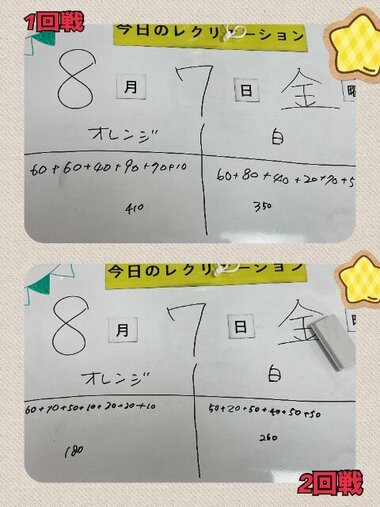 1回戦
今日のレクリエーション
8月7日金曜
オレンジ 白
60+60+40+90+90+10 60+80+40+20+90+5
410 350
今日のレクリエーション
8月7日金
オレンジ 白
60+70+50+10+20+20+10 50+20+50+40+50+50
180 260
2回戦